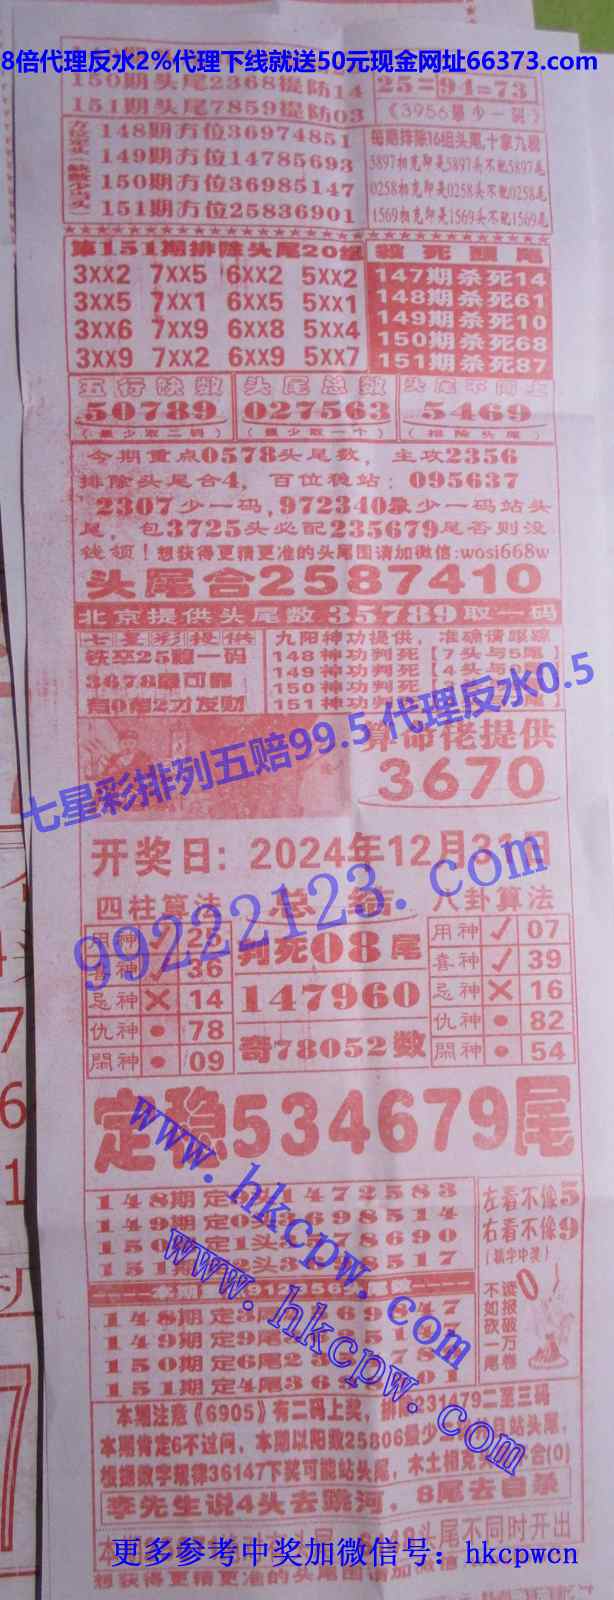 8倍代理反水2%代理下线就送50元现金网址66373.com
150期头尾2368提防14
151期头尾7859提防03
25=94=73
《3956最少一码》
148期方位36974851
149期方位14785693
150期方位36985147
151期方位25836901
每期排除16组头尾,十拿九稳
5897相克即是5897头不配5897尾
0258相克即是0258头不配0258尾
1569相克即是1569头不配1569尾
第151期排除头尾20组
3XX2 7XX5 6XX2 5XX2
3XX5 7XX1 6XX5 5XX1
3XX6 7XX9 6XX8 5XX4
3XX9 7XX2 6XX9 5XX7
杀死头尾
147期杀死14
148期杀死61
149期杀死10
150期杀死68
151期杀死87
五行快数
50789
(最少取二码)
头尾总数
027563
(最少取一个)
头尾不同上
5469
(排除头尾)
今期重点0578头尾数,主攻2356
排除头尾合4,百位稳站:095637
2307少一码,972340最少一码站头
尾,包3725头必配235679尾否则没
钱领!想获得更精更准的头尾图请加微信:wosi668w
头尾合2587410
北京提供头尾数35789取一码
七星彩提供
铁卒25跑一码
3678最可靠
有0有2才发财
九阳神功提供,准确请跟踪
148神功判死【7头与5尾】
149神功判死【4头
150神功判死
151神功判死
七星彩排列五赔99.5 代理反水0.5
算命佬提供
3670
开奖日:2024年12月31日
99222123.com
四柱算法
总结
八卦算法
用神 ✓ 25
喜神 ✓ 36
忌神 ✕ 14
仇神 • 78
閑神 • 09
判死08尾
147960
奇78052数
用神 ✓ 07
喜神 ✓ 39
忌神 ✕ 16
仇神 • 82
閑神 • 54
定稳534679尾
www.hkcpw.com
148期定
1472583
149期定0
3698514
150
定1头
78690
151期
2头3
517
左看不像5
右看不像9
(猜字中奖)
不读
如报
砍破
一万
尾卷
www.hkcpw.com
148期定
149期定9尾
150期定6尾
151期定4尾
本期注意《6905》有二码上奖,排除231479二至三码
本期肯定6不过问,本期以阳数25806最少二
站头尾,
根据数字规律36147下奖可能站头尾,木土相克
合(0)
李先生说4头去跳河,8尾去自杀
头尾不同时开出
更多参考中奖加微信号:hkcpwcn
想获得更精更准的头尾图请加微信